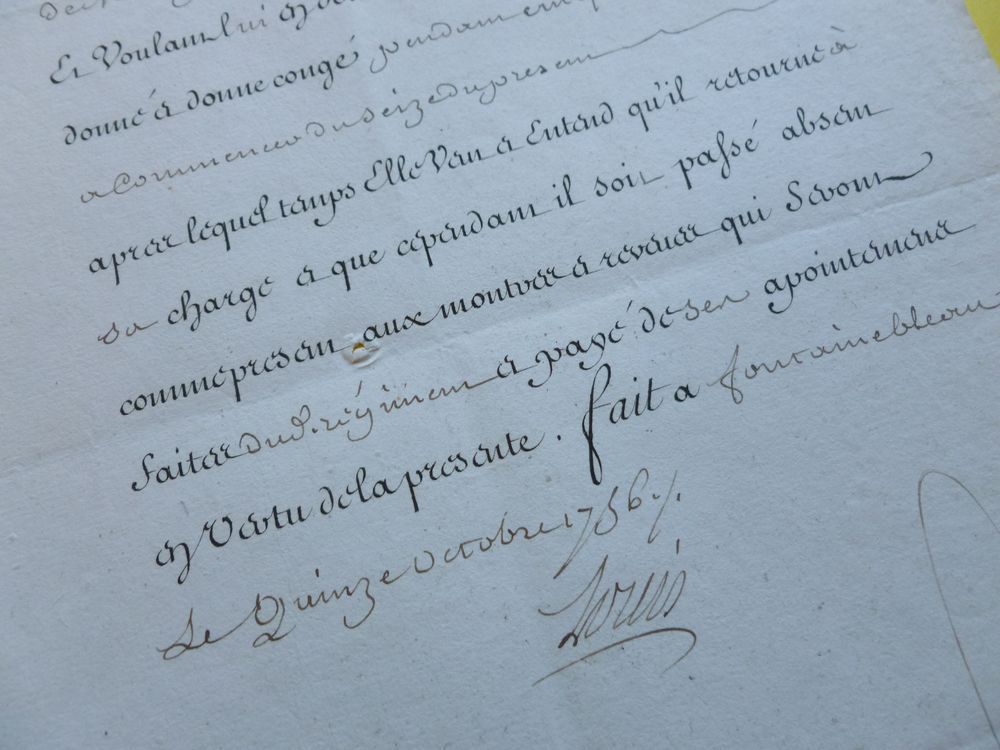 Et Voulant lui en
donné & donne congé pendant
a Commencer du seize du present
apres lequel temps Elle Veut & Entend qu'il retourne à
sa charge & que cependant il soit passé absent
comme present aux montres & reveues qui Seront
faites dud. régiment & payé de ses apointemens
en Vertu de la presente. fait a fontainebleau
Le Quinze Octobre 1756 /.
Louis